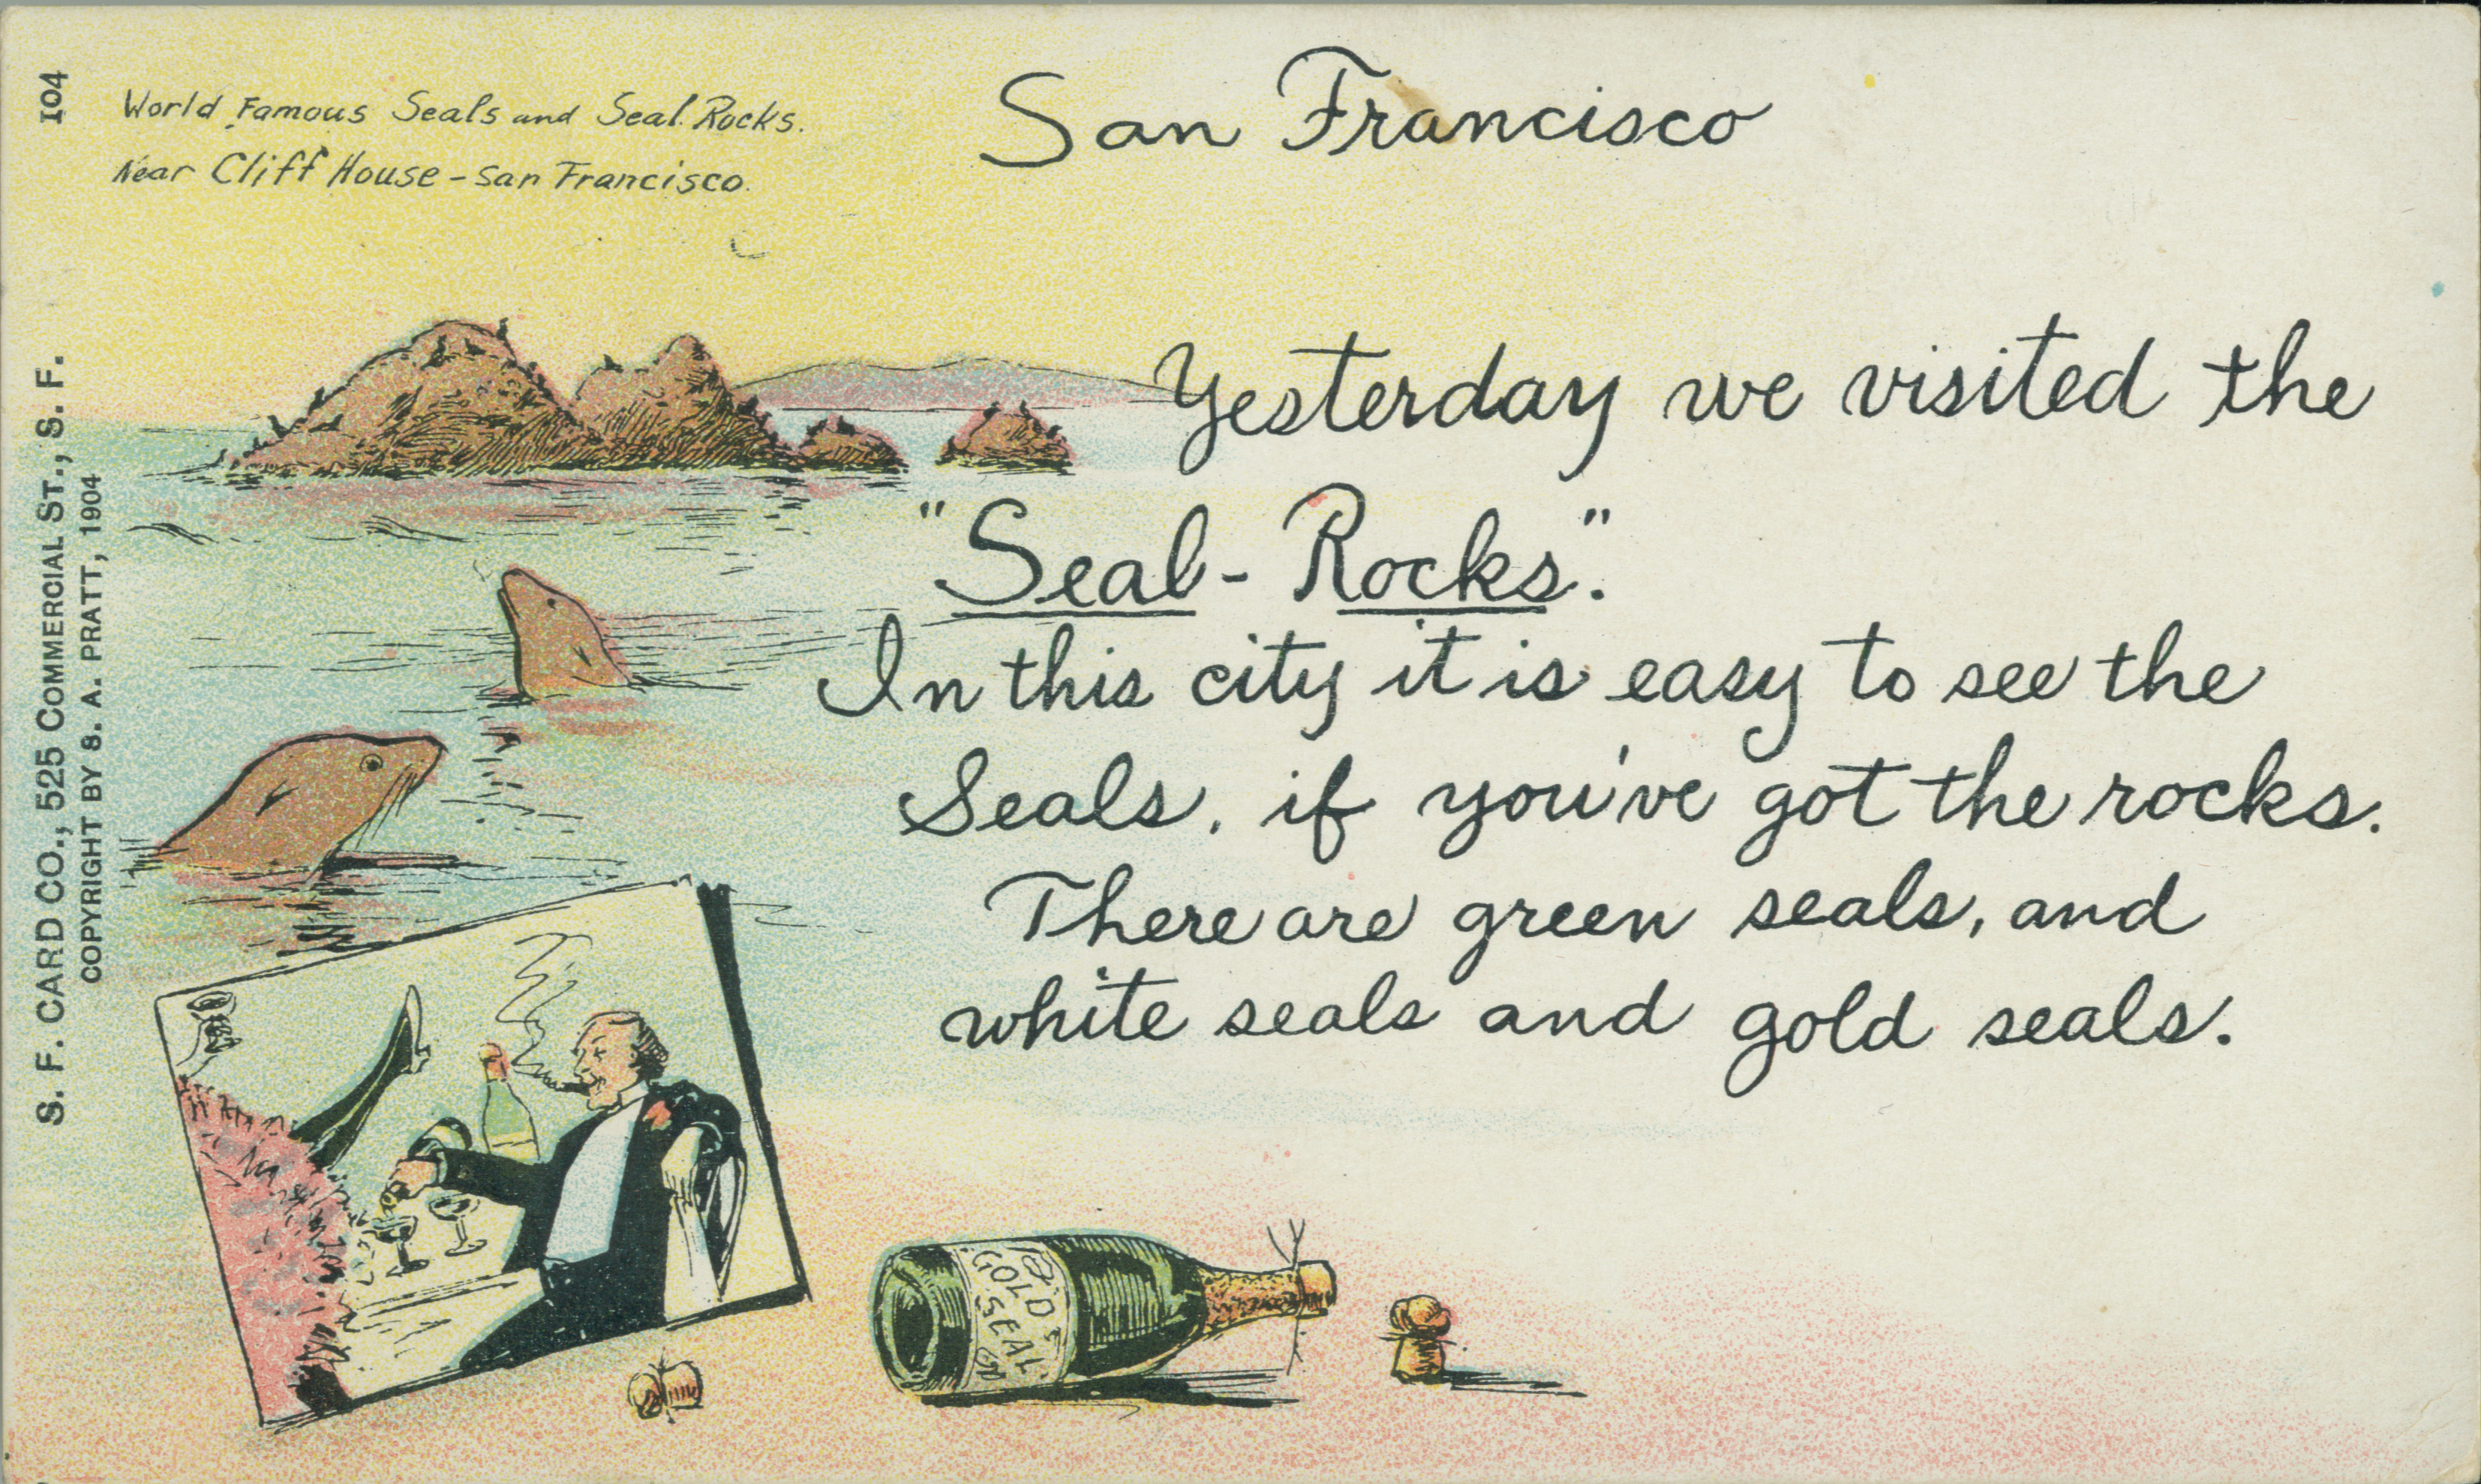 104
World Famous Seals and Seal Rocks.
Near Cliff House - San Francisco.
San Francisco
Yesterday we visited the
"Seal - Rocks".
In this city it is easy to see the
Seals, if you've got the rocks.
There are green seals, and
white seals and gold seals.
S. F. CARD CO., 525 COMMERCIAL ST., S. F.
COPYRIGHT BY S. A. PRATT, 1904
GOLD
SEAL